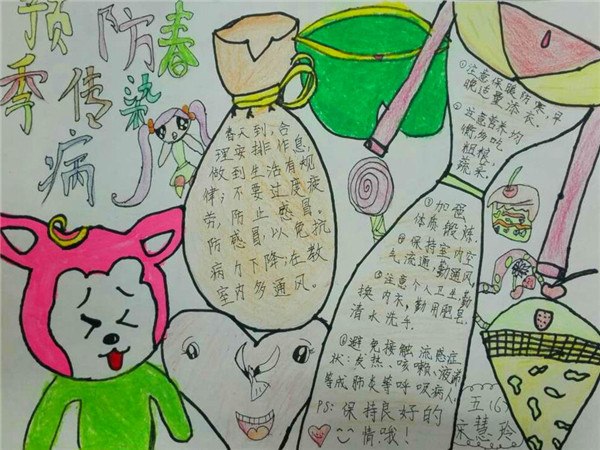 预防春
季传染
病
春天到,合
理安排作息,
做到生活有规
律;不要过度疲
劳,防止感冒。
防感冒,以免抗
病力下降;在教
室内多通风。
①注意保暖防寒,早
晚适量添衣。
②注意营养均
衡,多吃
粗粮,
蔬菜。
③加强
体质锻炼,
④保持室内空
气流通,勤通风,
⑤注意个人卫生,勤
换内衣,勤用肥皂,
清水洗手。
⑥避免接触流感症
状:发热、咳嗽、流涕
等或肺炎等呼吸病人,
PS:保持良好的
心情哦!
五(6)
宋慧玲